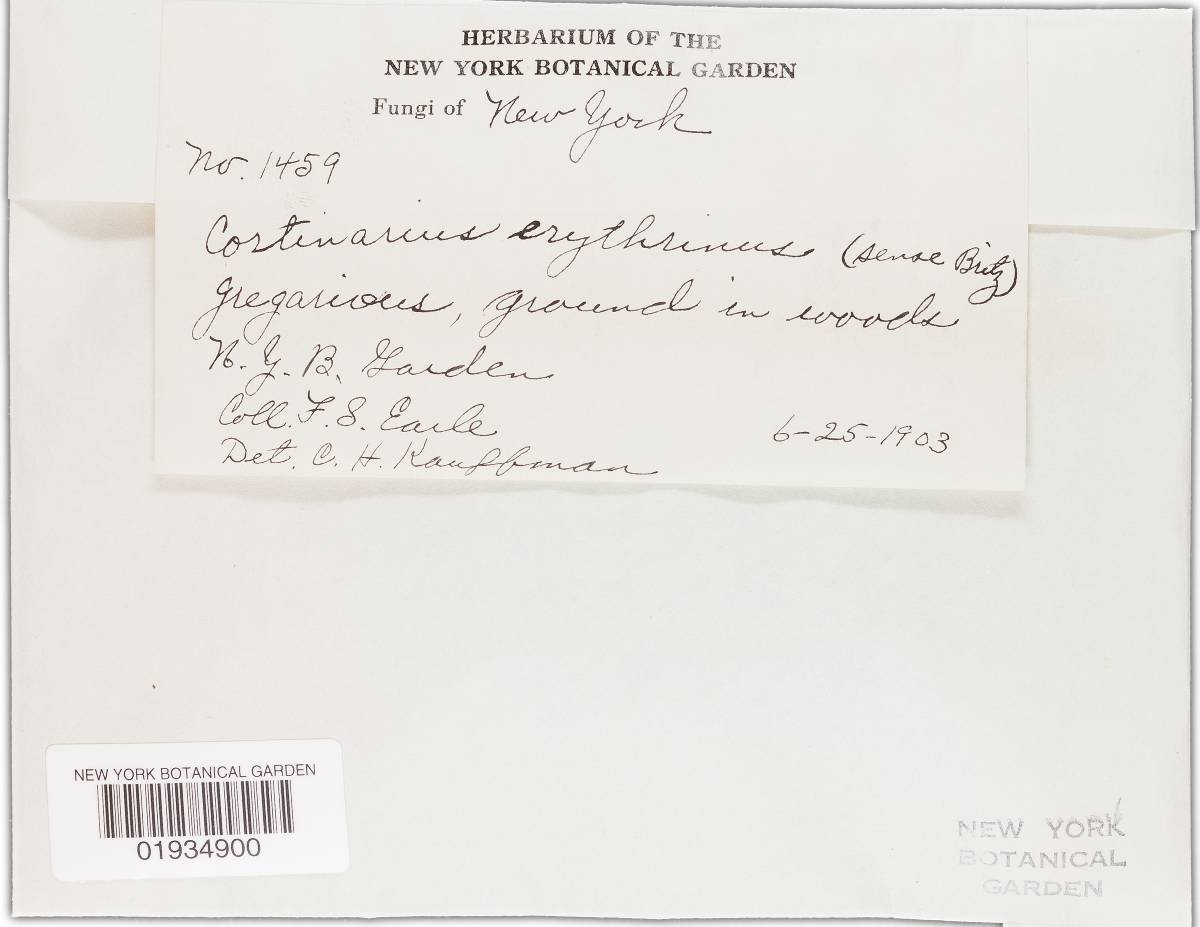 HERBARIUM OF THE
NEW YORK BOTANICAL GARDEN
Fungi of New York
No. 1459
Cortinarius erythrinus (sense Britz)
Gregarious, ground in woods
N. Y. B. Garden
Coll. F. S. Earle
6-25-1903
Det. C. H. Kauffman
NEW YORK BOTANICAL GARDEN
01934900
NEW YORK
BOTANICAL
GARDEN